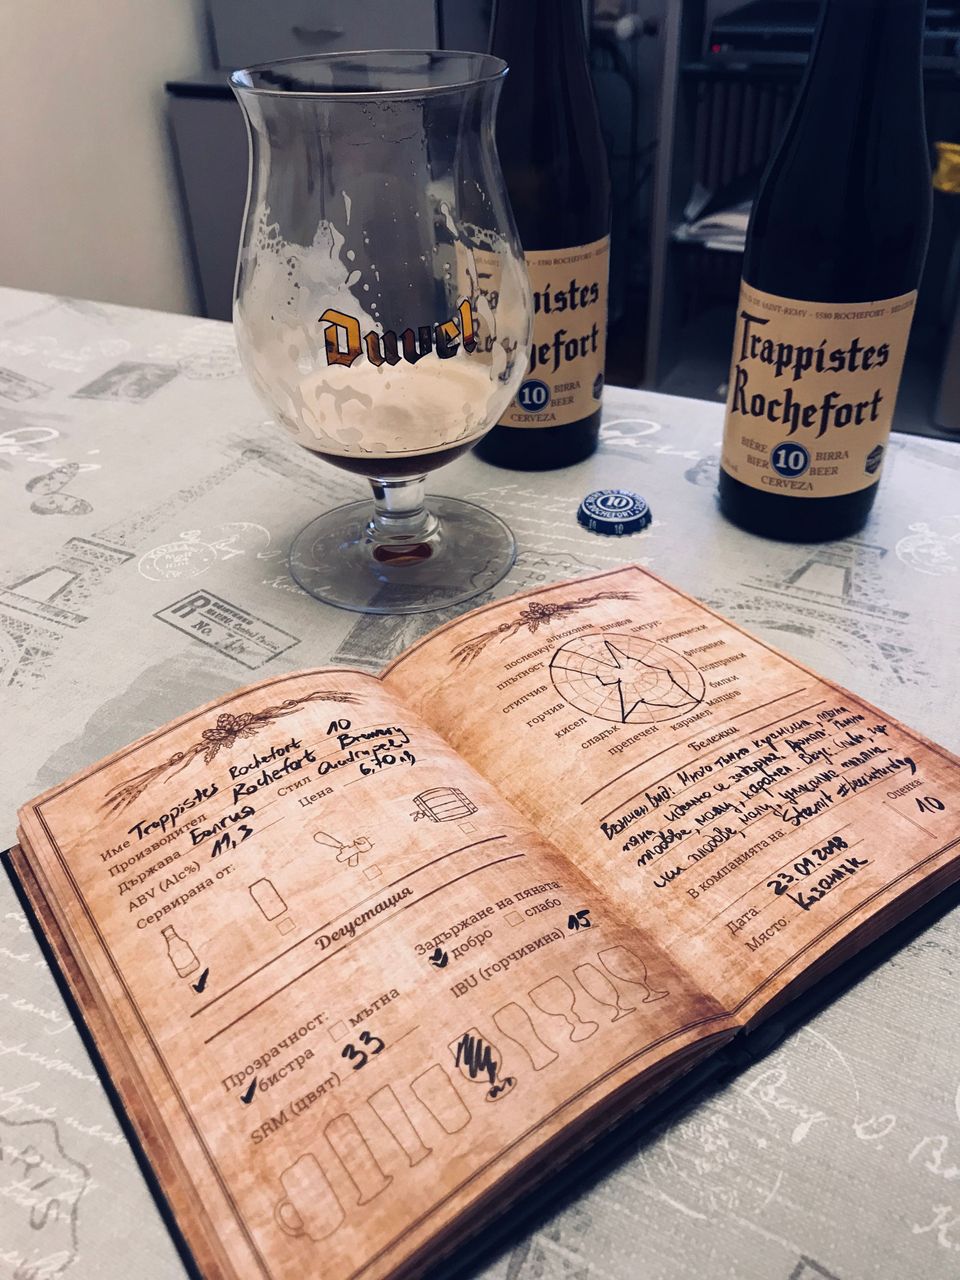 Duvel
Trappistes
Rochefort
10
BIRRA
BEER
CERVEZA
ROCHEFORT
Trappistes
Rochefort
BIÈRE 10 BIRRA
BIER BEER
CERVEZA
10
ROCHEFORT
10
Име Trappistes Rochefort 10
Производител Rochefort Brewery
Държава Белгия Стил Quadrupel
ABV (Alc%) 11,3 Цена 6,70 лв
Сервирана от:
Дегустация
Прозрачност:
бистра мътна
Задържане на пяната
добро слабо
SRM (цвят) 33
IBU (горчивина) 15
алкохолен
плодов
цитрус
тропически
флорален
подправки
билки
малцов
карамел
препечен
сладък
кисел
горчив
стипчив
плътност
послевкус
Бележки
Външен вид: Много тъмно кафяв, пяна
плодове, малц, карамел Вкус:
или плодове, малц,
Steemit #beersaturday
В компанията на:
Оценка 10
Дата: 23.01.2018
Място: Казанлък